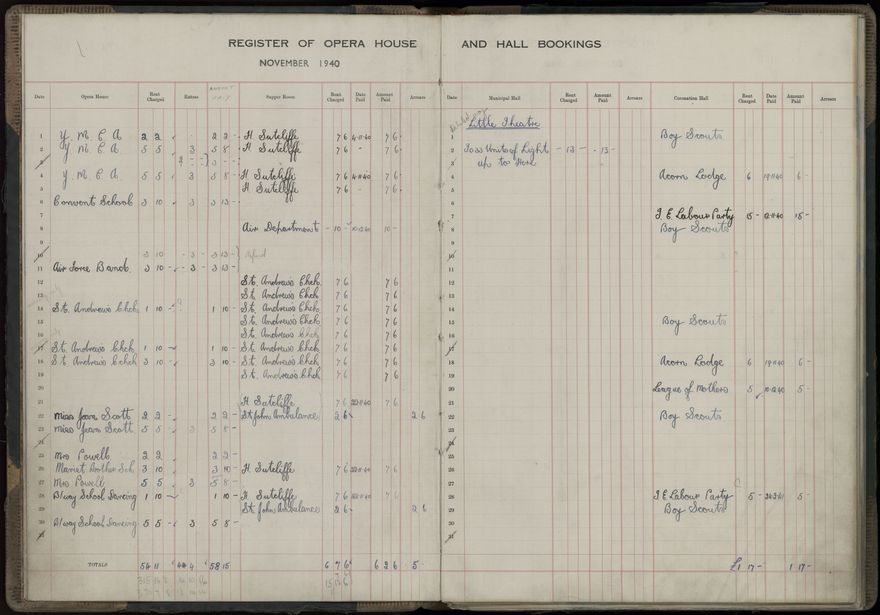 REGISTER OF OPERA HOUSE AND HALL BOOKINGS
NOVEMBER 1940
Date Opera House Rent Charged Extras AMOUNT Supper Room Rent Charged Date Paid Amount Paid Arrears Date Municipal Hall Rent Charged Amount Paid Arrears Coronation Hall Rent Charged Date Paid Amount Paid Arrears
Little Theatre
1 Y. M. C. A 2 2 2 2 - H. Sutcliffe 7 6 4-11-40 7 6 1 Boy Scouts
2 Y. M. C. A. 5 5 3 5 8 - H. Sutcliffe 7 6 - 7 6 2 To 33 Units of Light - 13 - - 13 -
3 3 up to Here
4 Y. M. C. A 5 5 3 5 8 - H. Sutcliffe 7 6 4-11-40 7 6 4 Acorn Lodge 6 19-11-40 6 -
5 H. Sutcliffe 7 6 - 7 6 5
6 Convent School 3 10 - 3 3 13 - 6
7 7 J. E. Labour Party 15 - 12-11-40 15 -
8 Air Department - 10 - 10-12-40 10 - 8 Boy Scouts
9 9
10 3 10 - 3 - 3 13 - Refund 10
11 Air Force Band. 3 10 - 3 - 3 13 - 11
12 St. Andrews Chch 7 6 7 6 12
13 St. Andrews Chch 7 6 7 6 13
14 St. Andrews Chch. 1 10 - 1 10 - St. Andrews Chch 7 6 7 6 14
15 St. Andrews Chch 7 6 7 6 15 Boy Scouts
16 St. Andrews Chch 7 6 7 6 16
17 St. Andrews Chch 1 10 - 1 10 - St. Andrews Chch 7 6 7 6 17
18 St. Andrews Chch 3 10 - 3 10 - St. Andrews Chch 7 6 7 6 18 Acorn Lodge 6 19-11-40 6 -
19 St. Andrews Chch 7 6 7 6 19
20 20 League of Mothers 5 10-12-40 5 -
21 H. Sutcliffe 7 6 22-11-40 7 6 21
22 Miss Jean Scott 2 2 - 2 2 - St John Ambulance 2 6 2 6 22 Boy Scouts
23 Miss Jean Scott 5 5 - 3 5 8 - 23
24 24
25 Mrs Powell 2 2 2 2 - 25
26 Marist Mother Sch. 3 10 3 10 - H. Sutcliffe 7 6 22-11-40 7 6 26
27 Mrs Powell 5 5 3 5 8 - 27
28 B/way School Dancing 1 10 - 1 10 - H. Sutcliffe 7 6 22-11-40 7 6 28 J. E. Labour Party 5 - 24-3-41 5 -
29 St. John Ambulance 2 6 - 2 6 29 Boy Scouts
30 B/way School Dancing 5 5 - 3 5 8 - 30
31 31
TOTALS 54 11 4 4 58 15 6 7 6 6 2 6 5 - £1 17 - 1 17 -